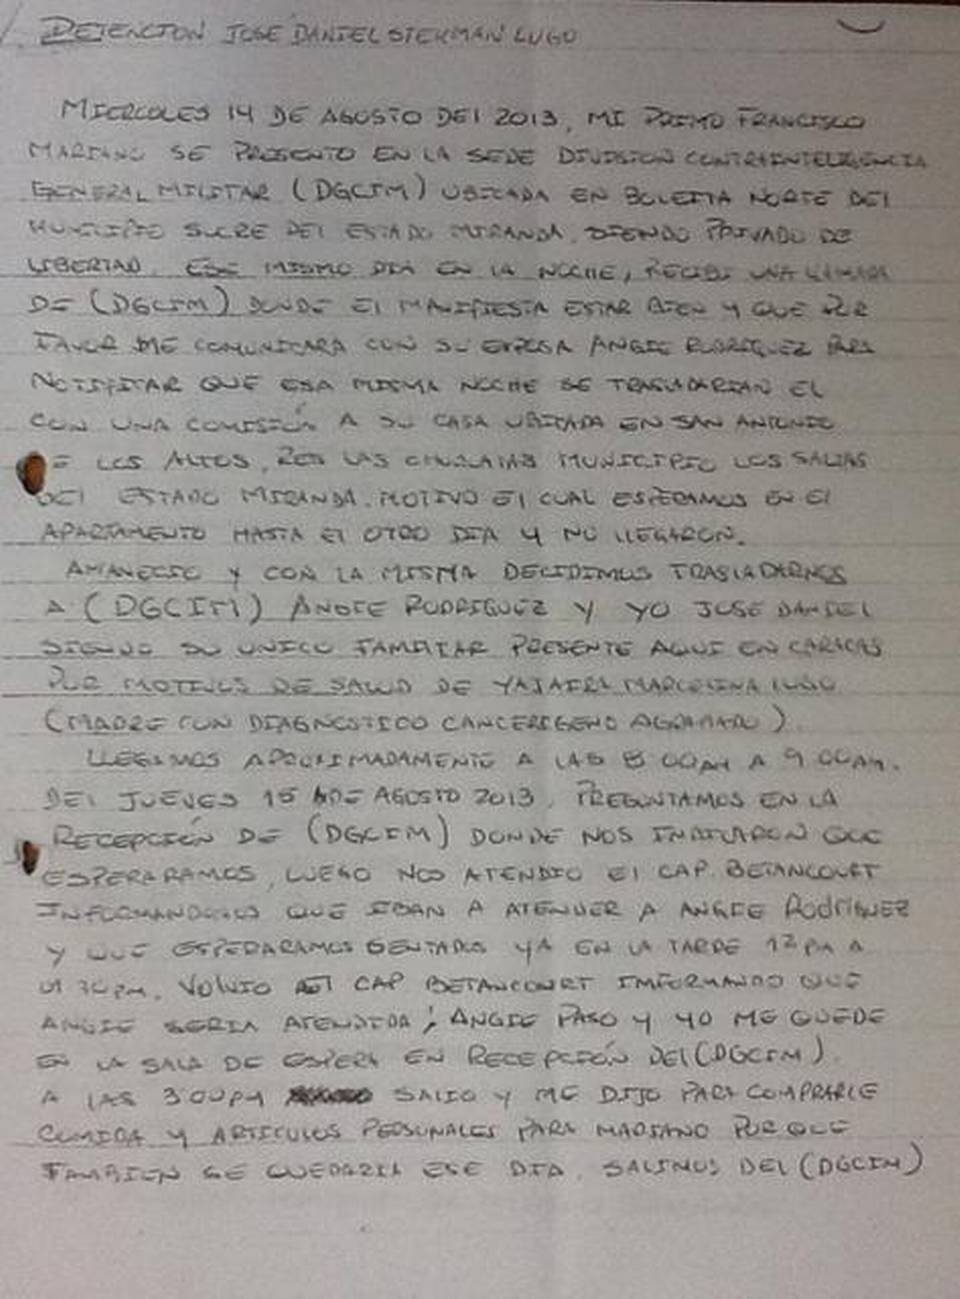 DETENCION JOSE DANIEL STEKMAN LUGO
MIERCOLES 14 DE AGOSTO DEL 2013, MI PRIMO FRANCISCO
MARIANO SE PRESENTO EN LA SEDE DIVISION CONTRAINTELIGENCIA
GENERAL MILITAR (DGCIM) UBICADA EN BOLEITA NORTE DEL
MUNICIPIO SUCRE DEL ESTADO MIRANDA. SIENDO PRIVADO DE
LIBERTAD. ESE MISMO DIA EN LA NOCHE, RECIBI UNA LLAMADA
DE (DGCIM) DONDE EL MANIFIESTA ESTAR BIEN Y QUE POR
FAVOR ME COMUNICARA CON SU ESPOSA ANGIE RODRIGUEZ PARA
NOTIFICAR QUE ESA MISMA NOCHE SE TRASLADARIAN EL
CON UNA COMISIÓN A SU CASA UBICADA EN SAN ANTONIO
DE LOS ALTOS, RES LAS MUNICIPIO LOS SALIAS
DEL ESTADO MIRANDA. MOTIVO EL CUAL ESPERAMOS EN EL
APARTAMENTO HASTA EL OTRO DIA Y NO LLEGARON.
AMANECIO Y CON LA MISMA DECIDIMOS TRASLADARNOS
A (DGCIM) ANGIE RODRIGUEZ Y YO JOSE DANIEL
SIENDO SU UNICO FAMILIAR PRESENTE AQUI EN CARACAS
POR MOTIVOS DE SALUD DE YAJAIRA MARCELINA LUGO
(MADRE CON DIAGNOSTICO CANCERIGENO AGRAVADO).
LLEGAMOS APROXIMADAMENTE A LAS 8:00AM A 9:00AM.
DEL JUEVES 15 DE AGOSTO 2013. PREGUNTAMOS EN LA
RECEPCIÓN DE (DGCIM) DONDE NOS INDICARON QUE
ESPERARAMOS, LUEGO NOS ATENDIO EL CAP. BETANCOURT
INFORMANDONOS QUE IBAN A ATENDER A ANGIE RODRÍGUEZ
Y QUE ESPERARAMOS SENTADOS YA EN LA TARDE 12PM A
01:30PM. VOLVIO EL CAP BETANCOURT INFORMANDO QUE
ANGIE SERIA ATENDIDA; ANGIE PASO Y YO ME QUEDE
EN LA SALA DE ESPERA EN RECEPCIÓN DEL (DGCIM).
A LAS 3:00PM SALIO Y ME DIJO PARA COMPRARLE
COMIDA Y ARTICULOS PERSONALES PARA MARIANO PORQUE
TAMBIEN SE QUEDARIA ESE DIA. SALIMOS DEL (DGCIM)